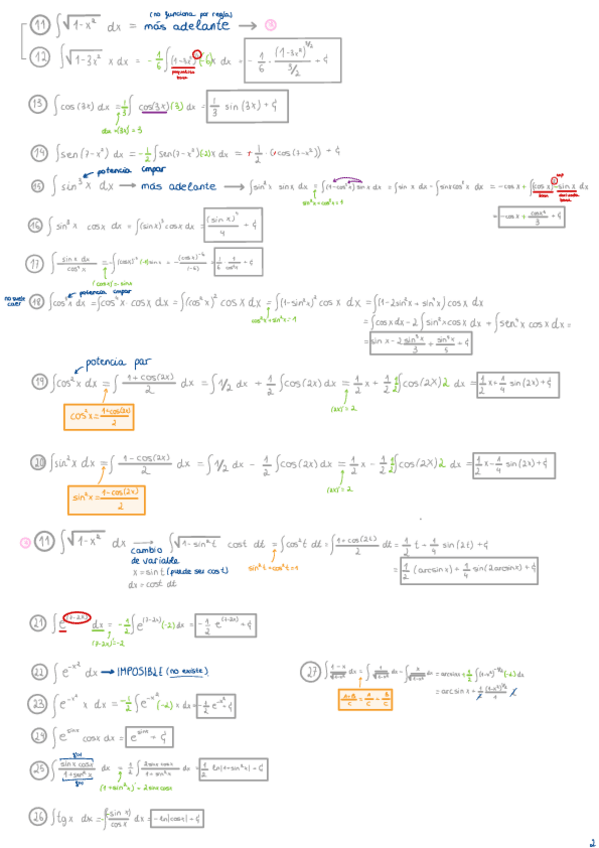 (no funciona por regla)
11 ∫√1-x² dx = más adelante →
12 ∫√1-3x² x dx = -1/6 ∫(1-3x²)(-6)x dx = -1/6 · (1-3x²)^(3/2) / 3/2 + C
13 ∫cos(3x) dx = 1/3 ∫cos(3x)(3) dx = 1/3 sin(3x) + C
14 ∫sen(7-x²) dx = -1/2 ∫sen(7-x²)(-2)x dx = +1/2 · (+cos(7-x²)) + C
potencia impar
15 ∫sin³x dx → más adelante → ∫sin²x sinx dx = ∫(1-cos²x) sinx dx = ∫sinx dx - ∫sinx cos²x dx = -cosx + ∫(cosx)² -sinx dx
sin²x+cos²x=1
= -cosx + cos³x/3 + C
16 ∫sin³x cosx dx = ∫(sinx)³ cosx dx = (sinx)⁴/4 + C
17 ∫ sinx dx / cos⁷x = -∫(cosx)⁻⁷(-1)sinx = -(cosx)⁻⁶/(-6) = 1/6 1/cos⁶x + C
(cosx)'=-sinx
no suele caer
potencia impar
18 ∫cos⁵x dx = ∫cos⁴x · cosx dx = ∫(cos²x)² cosx dx = ∫(1-sin²x)² cosx dx = ∫(1-2sin²x+sin⁴x) cosx dx
cos²x+sin²x=1
= ∫cosx dx - 2∫sin²x cosx dx + ∫sen⁴x cosx dx =
= sinx - 2 sin³x/3 + sin⁵x/5 + C
potencia par
19 ∫cos²x dx = ∫ 1+cos(2x)/2 dx = ∫1/2 dx + 1/2 ∫cos(2x) dx = 1/2 x + 1/2 1/2 ∫cos(2x)2 dx = 1/2 x + 1/4 sin(2x) + C
(2x)'=2
cos²x = 1+cos(2x)/2
20 ∫sin²x dx = ∫ 1-cos(2x)/2 dx = ∫1/2 dx - 1/2 ∫cos(2x) dx = 1/2 x - 1/2 1/2 ∫cos(2x)2 dx = 1/2 x - 1/4 sin(2x) + C
(2x)'=2
sin²x = 1-cos(2x)/2
11 ∫√1-x² dx → ∫√1-sin²t cost dt = ∫cos²t dt = ∫ 1+cos(2t)/2 dt = 1/2 t + 1/4 sin(2t) + C
cambio de variable
sin²t+cos²t=1
x = sint (puede ser cost)
dx = cost dt
= 1/2 (arcsinx) + 1/4 sin(2arcsinx) + C
21 ∫e^(7-2x) dx = -1/2 ∫e^(7-2x)(-2)dx = -1/2 e^(7-2x) + C
(7-2x)'=-2
22 ∫e^(-x²) dx → IMPOSIBLE (no existe)
23 ∫e^(-x²) x dx = -1/2 ∫e^(-x²)(-2)x dx = -1/2 e^(-x²) + C
24 ∫e^(sinx) cosx dx = e^(sinx) + C
25 ∫ sinx cosx / 1+sen²x dx = 1/2 ∫ 2sinx cosx / 1+sin²x dx = 1/2 ln|1+sin²x| + C
(1+sin²x)' = 2sinx cosx
26 ∫tgx dx = -∫ -sinx/cosx dx = -ln|cosx| + C
27 ∫ 1-x/√1-x² dx = ∫ 1/√1-x² dx - ∫ x/√1-x² dx = arcsinx + 1/2 ∫(1-x²)^(-1/2)(-2)x dx
= arcsinx + 1/2 (1-x²)^(1/2)
2